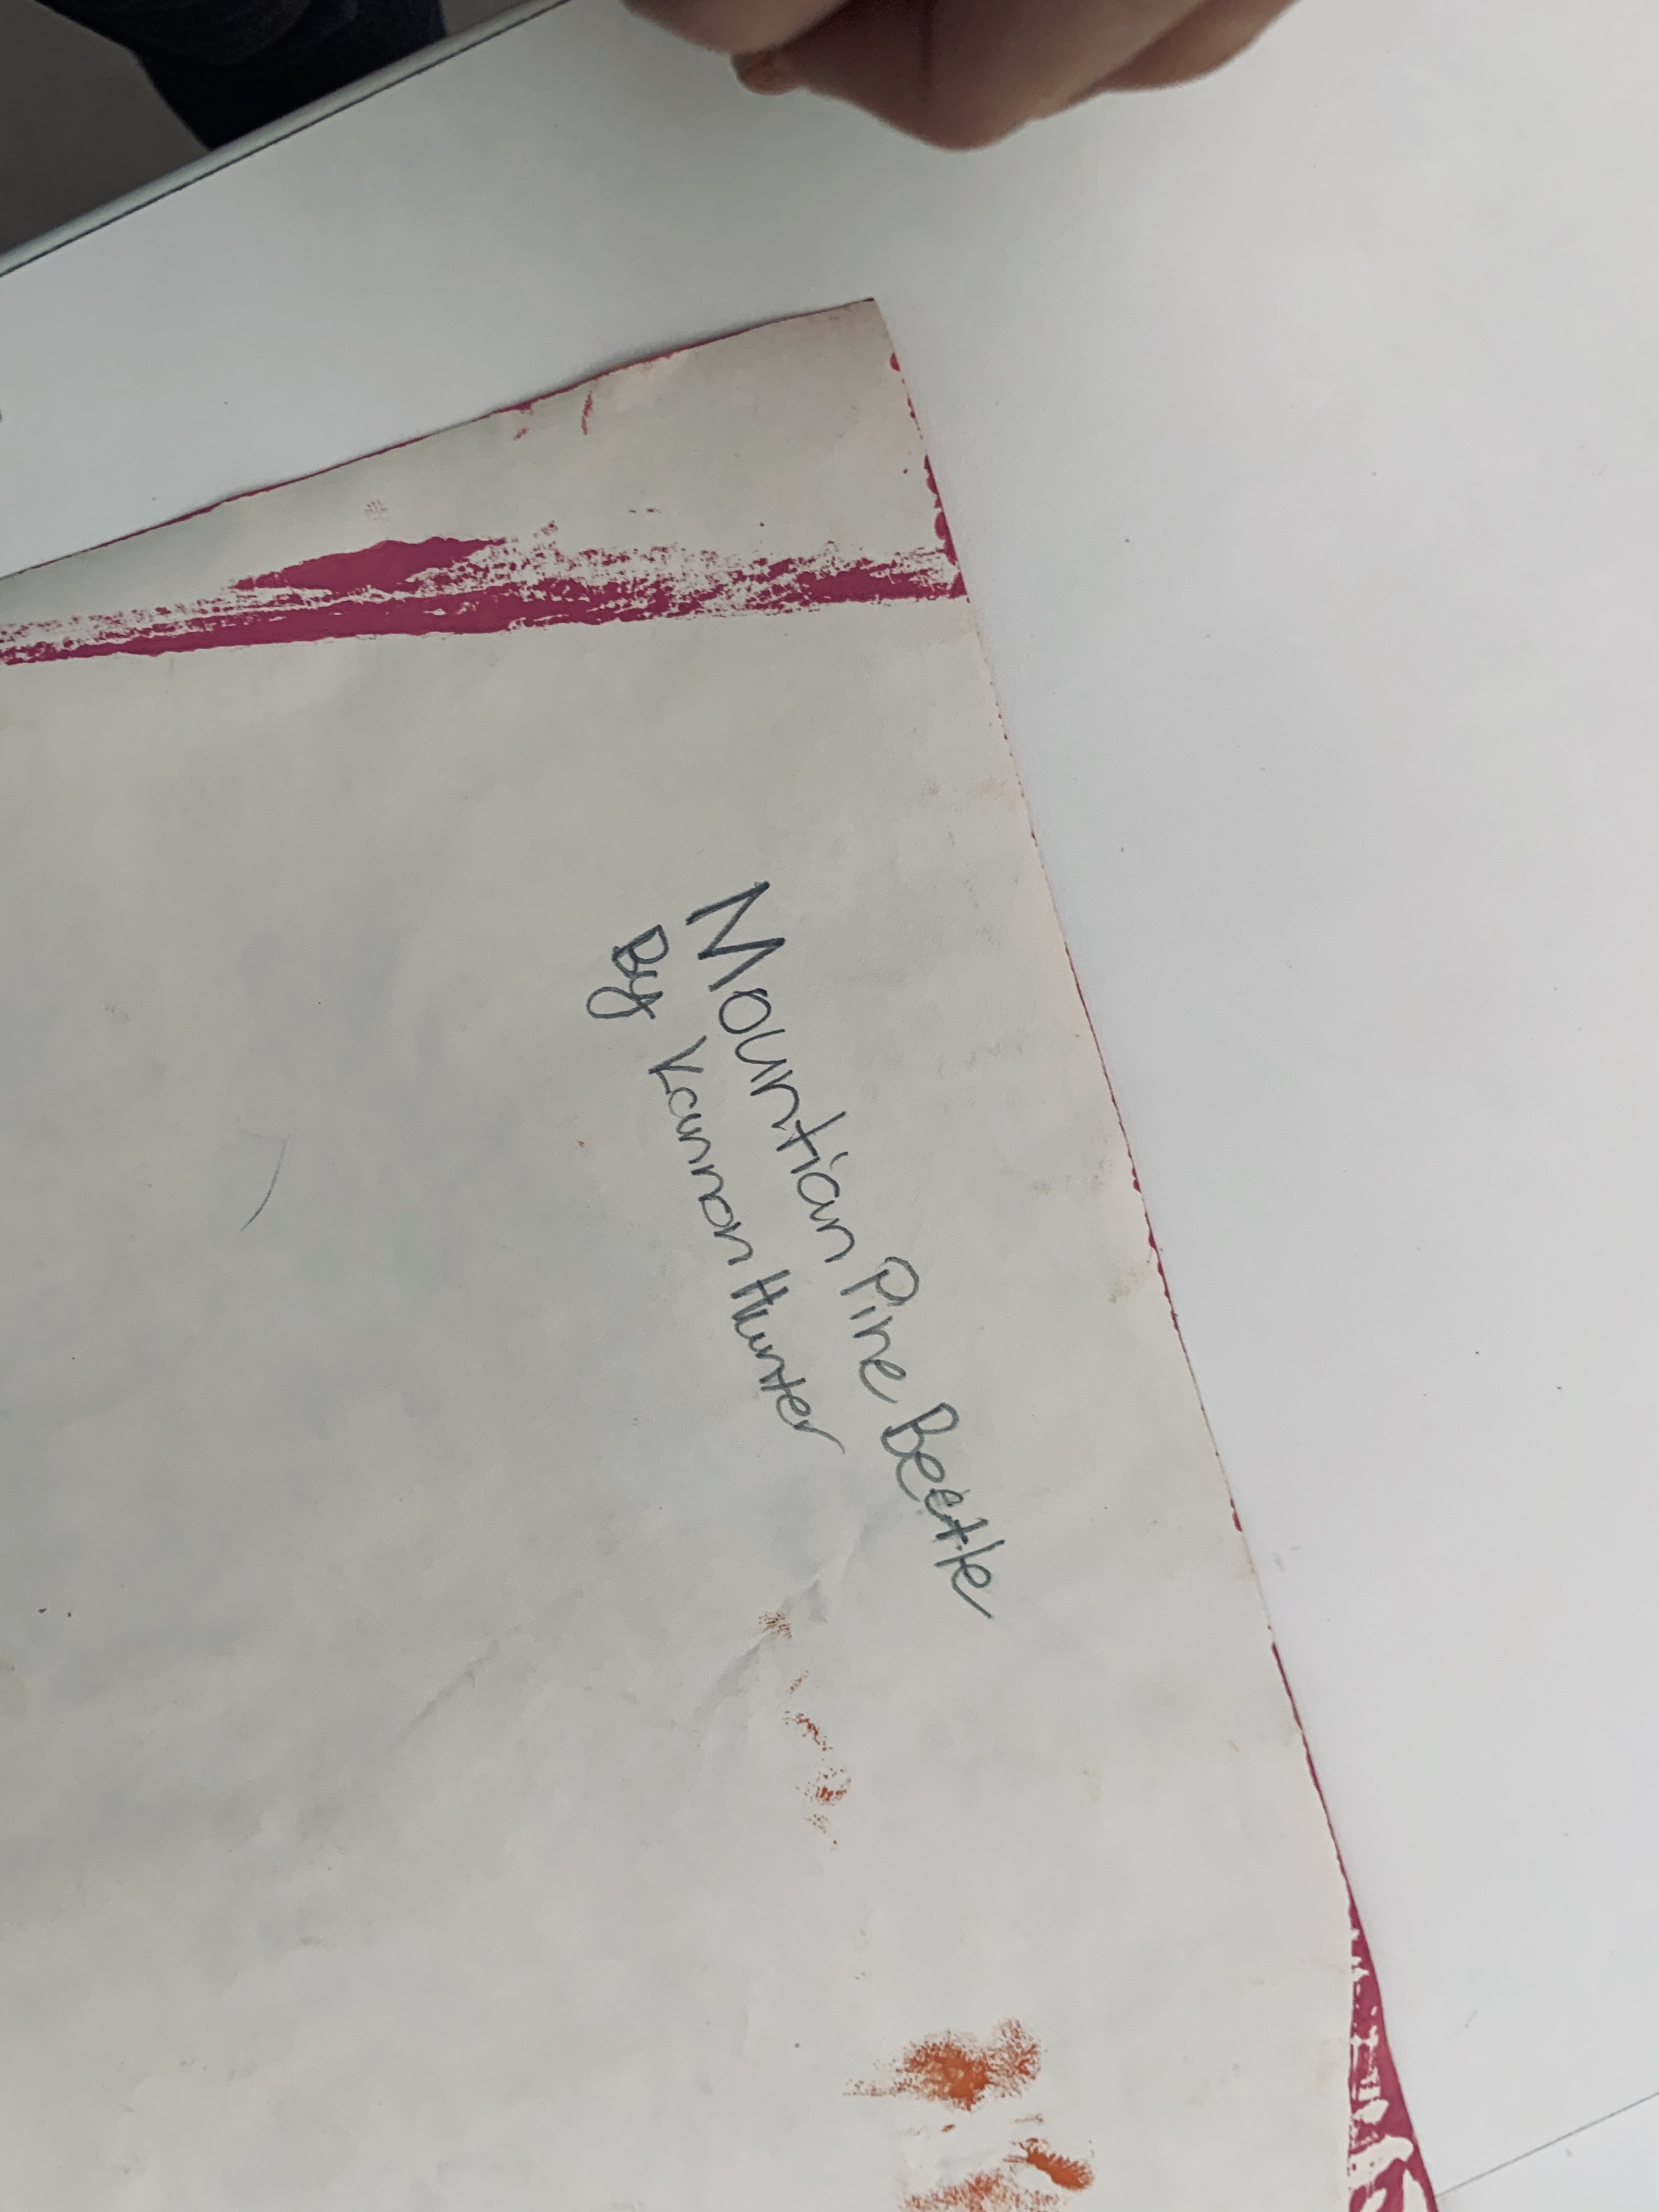 Mountian Pine Beetle
By Kannon Hunter